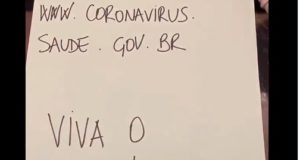 WWW. CORONAVÍRUS.
SAUDE. GOV. BR
VIVA O